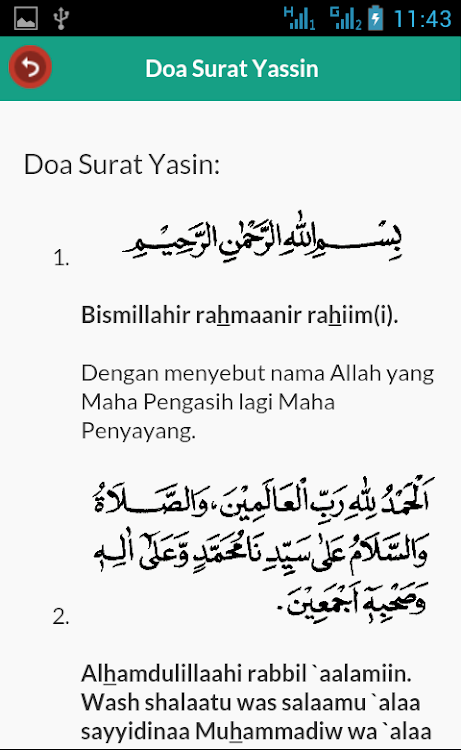 H 1 G 2 11:43
Doa Surat Yassin
Doa Surat Yasin:
1. بِسْمِ اللهِ الرَّحْمٰنِ الرَّحِيْمِ
Bismillahir rahmaanir rahiim(i).
Dengan menyebut nama Allah yang
Maha Pengasih lagi Maha
Penyayang.
اَلْحَمْدُ لِلّٰهِ رَبِّ الْعَالَمِيْنَ، وَالصَّلَاةُ
وَالسَّلَامُ عَلٰى سَيِّدِنَا مُحَمَّدٍ وَّعَلٰٓى اٰلِهٖ
2. وَصَحْبِهٖٓ اَجْمَعِيْنَ.
Alhamdulillaahi rabbil `aalamiin.
Wash shalaatu was salaamu `alaa
sayyidinaa Muhammadiw wa `alaa